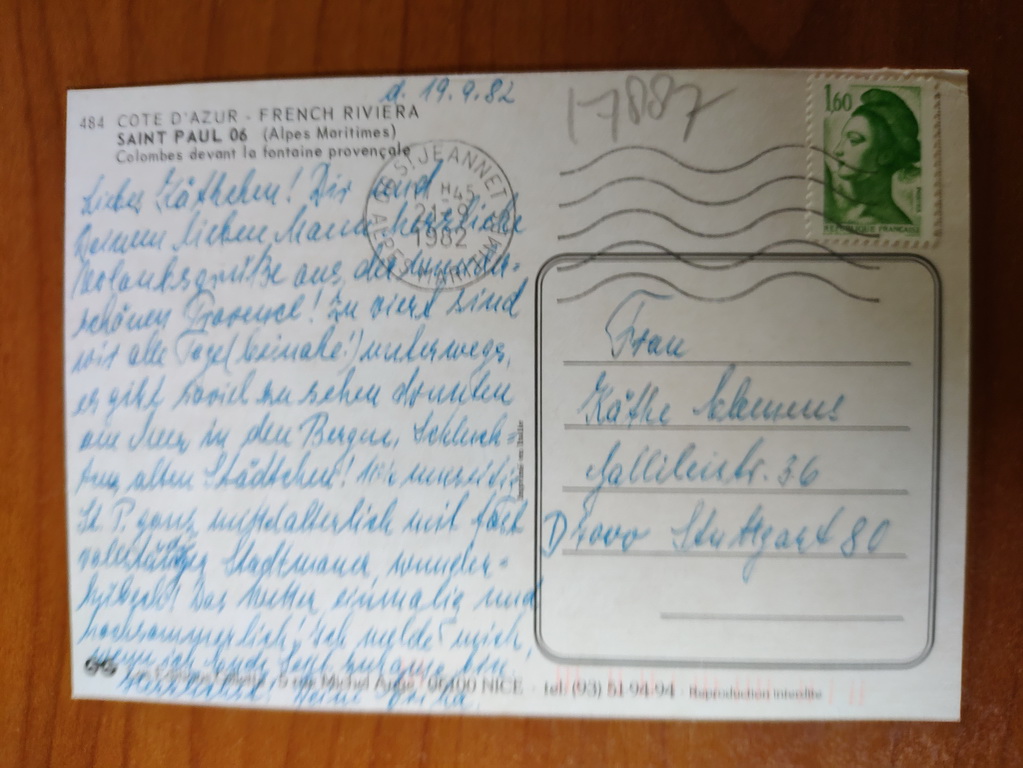 d. 19.9.82
17887
484 COTE D'AZUR - FRENCH RIVIERA
SAINT PAUL 06 (Alpes Maritimes)
Colombes devant la fontaine provençale
1,60
REPUBLIQUE FRANÇAISE
ST JEANNET
H45
21-9
1982
ALPES MARITIMES
Liebes Käthchen! Dir und
Deinem lieben Mann herzliche
Urlaubsgrüße aus der wunder-
schönen Provence! Zu viert sind
wir alle Tage (beinahe!) unterwegs,
es gibt soviel zu sehen drunten
am Meer, in den Bergen, Schluch-
ten, alten Städtchen!
St. P. ganz mittelalterlich mit fast
vollständiger Stadtmauer, wunder-
Das Wetter einmalig und
hochsommerlich! Ich melde mich,
wenn ich Ende Sept. zuhause bin.
Herzlichst, Deine
Frau
Käthe Clemens
Gallileistr. 36
D 7000 Stuttgart 80
Imprimé en Italie
5 rue Michel Ange - 06100 NICE - tél (93) 51.94.94 - Reproduction interdite